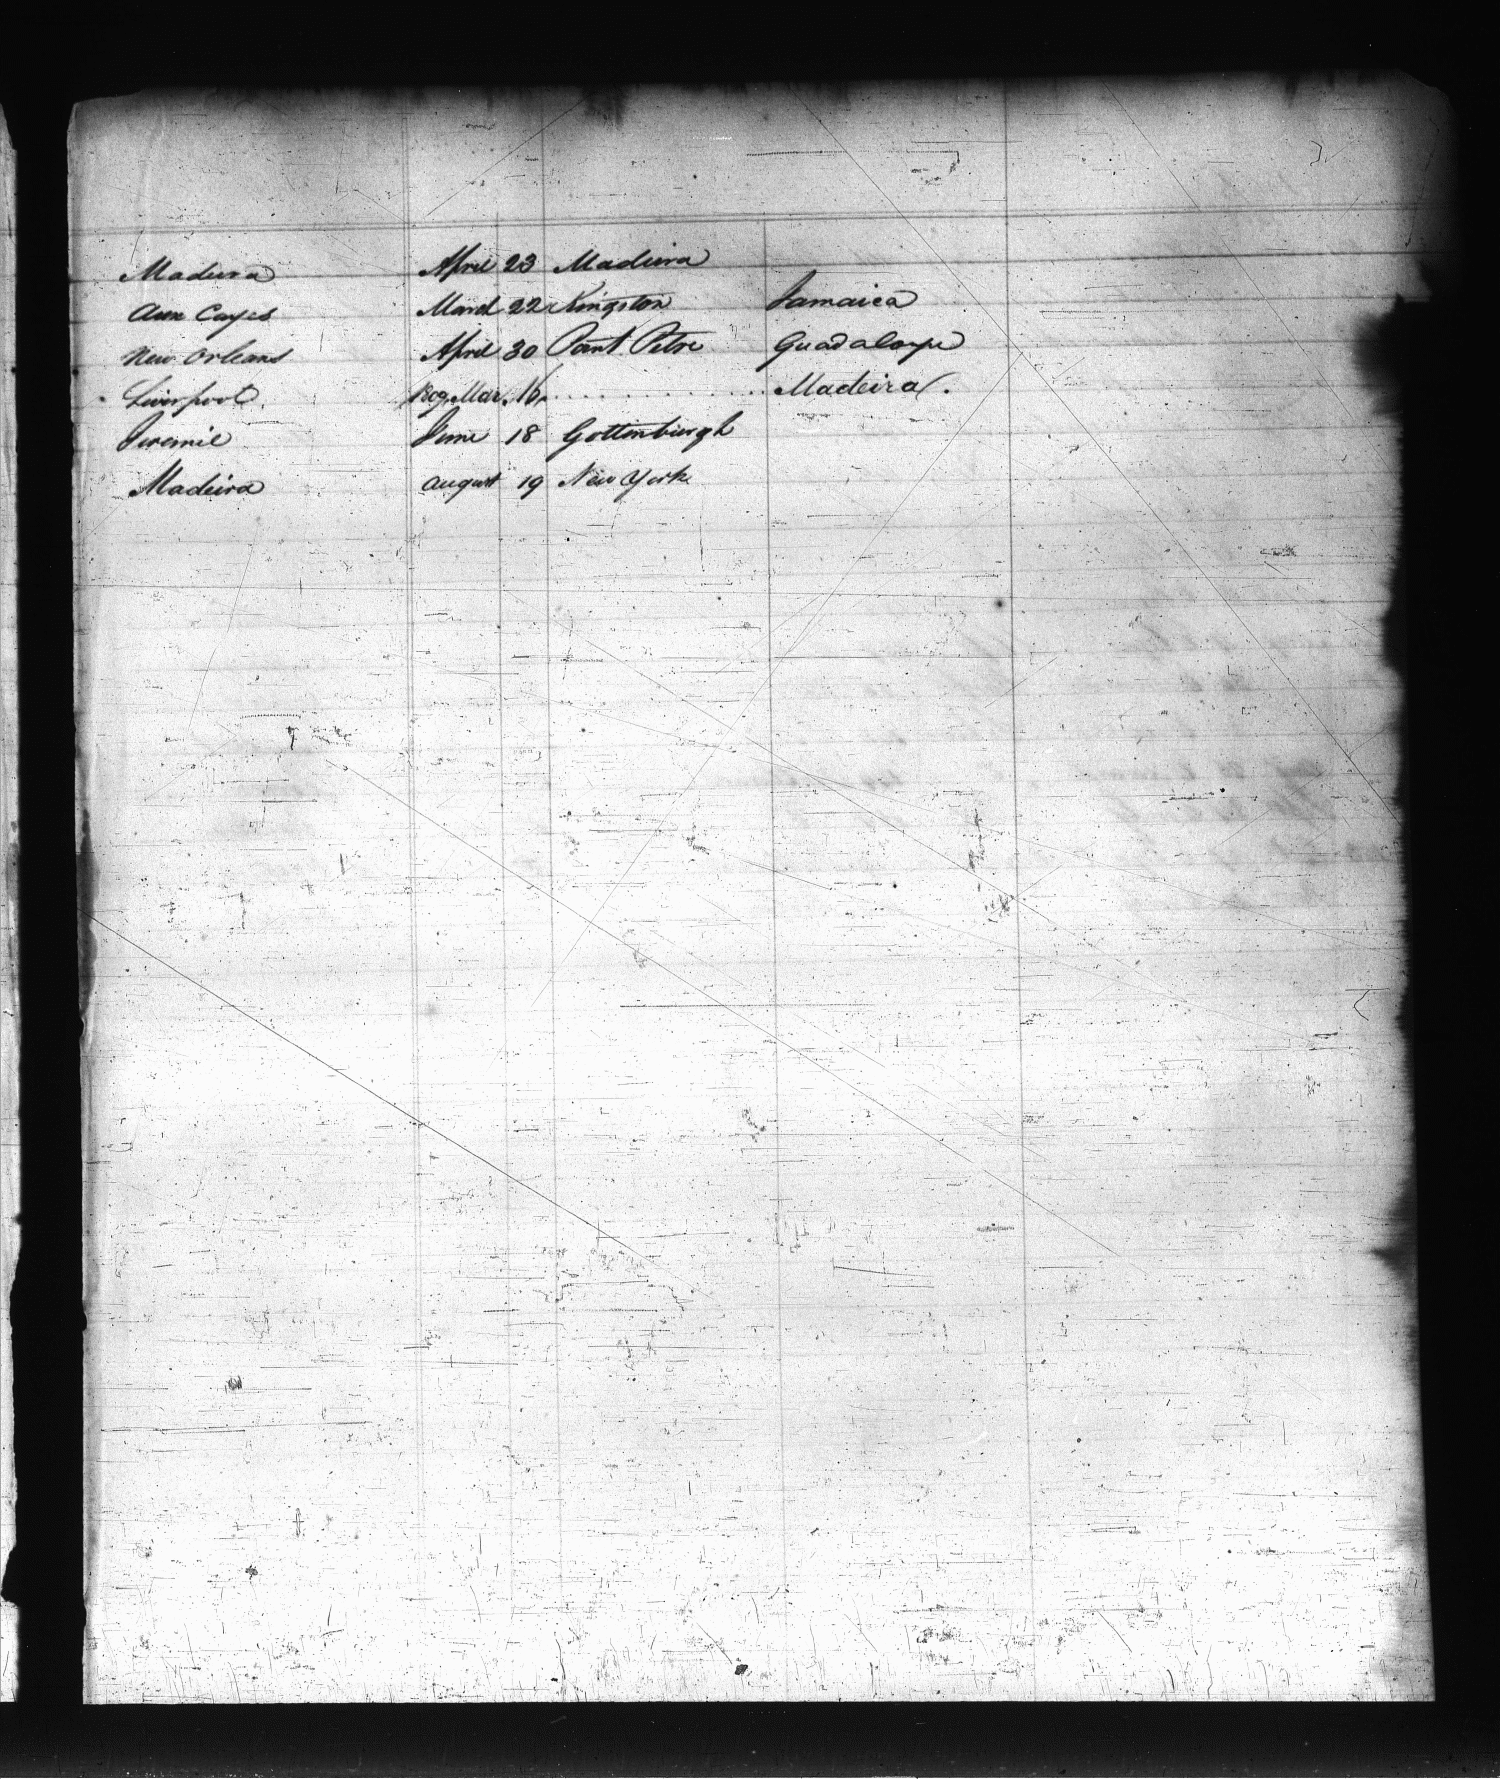 Madeira April 23 Madeira
Aux Cayes March 22 Kingston Jamaica
New Orleans April 30 Point Petre Guadaloupe
Liverpool. Reg. Mar. 16. . . . . . . . . . . . . . Madeira.
Jeremie June 18 Gottenburgh
Madeira August 19 New York